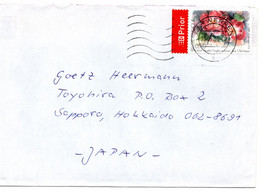 Prior
Goetz Heermann
Toyohira P.O. Box 2
Sapporo, Hokkaido 062-8691
- JAPAN -